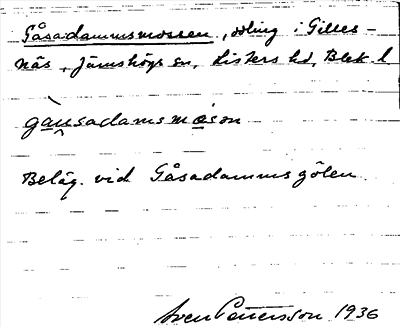 Gåsadammsmossen, odling i Gilles-
näs, Jämshögs sn, Listers hd, Blek. l
gàu̯sadamsmɑson
Beläg. vid Gåsadammsgölen
Sven Pettersson 1936